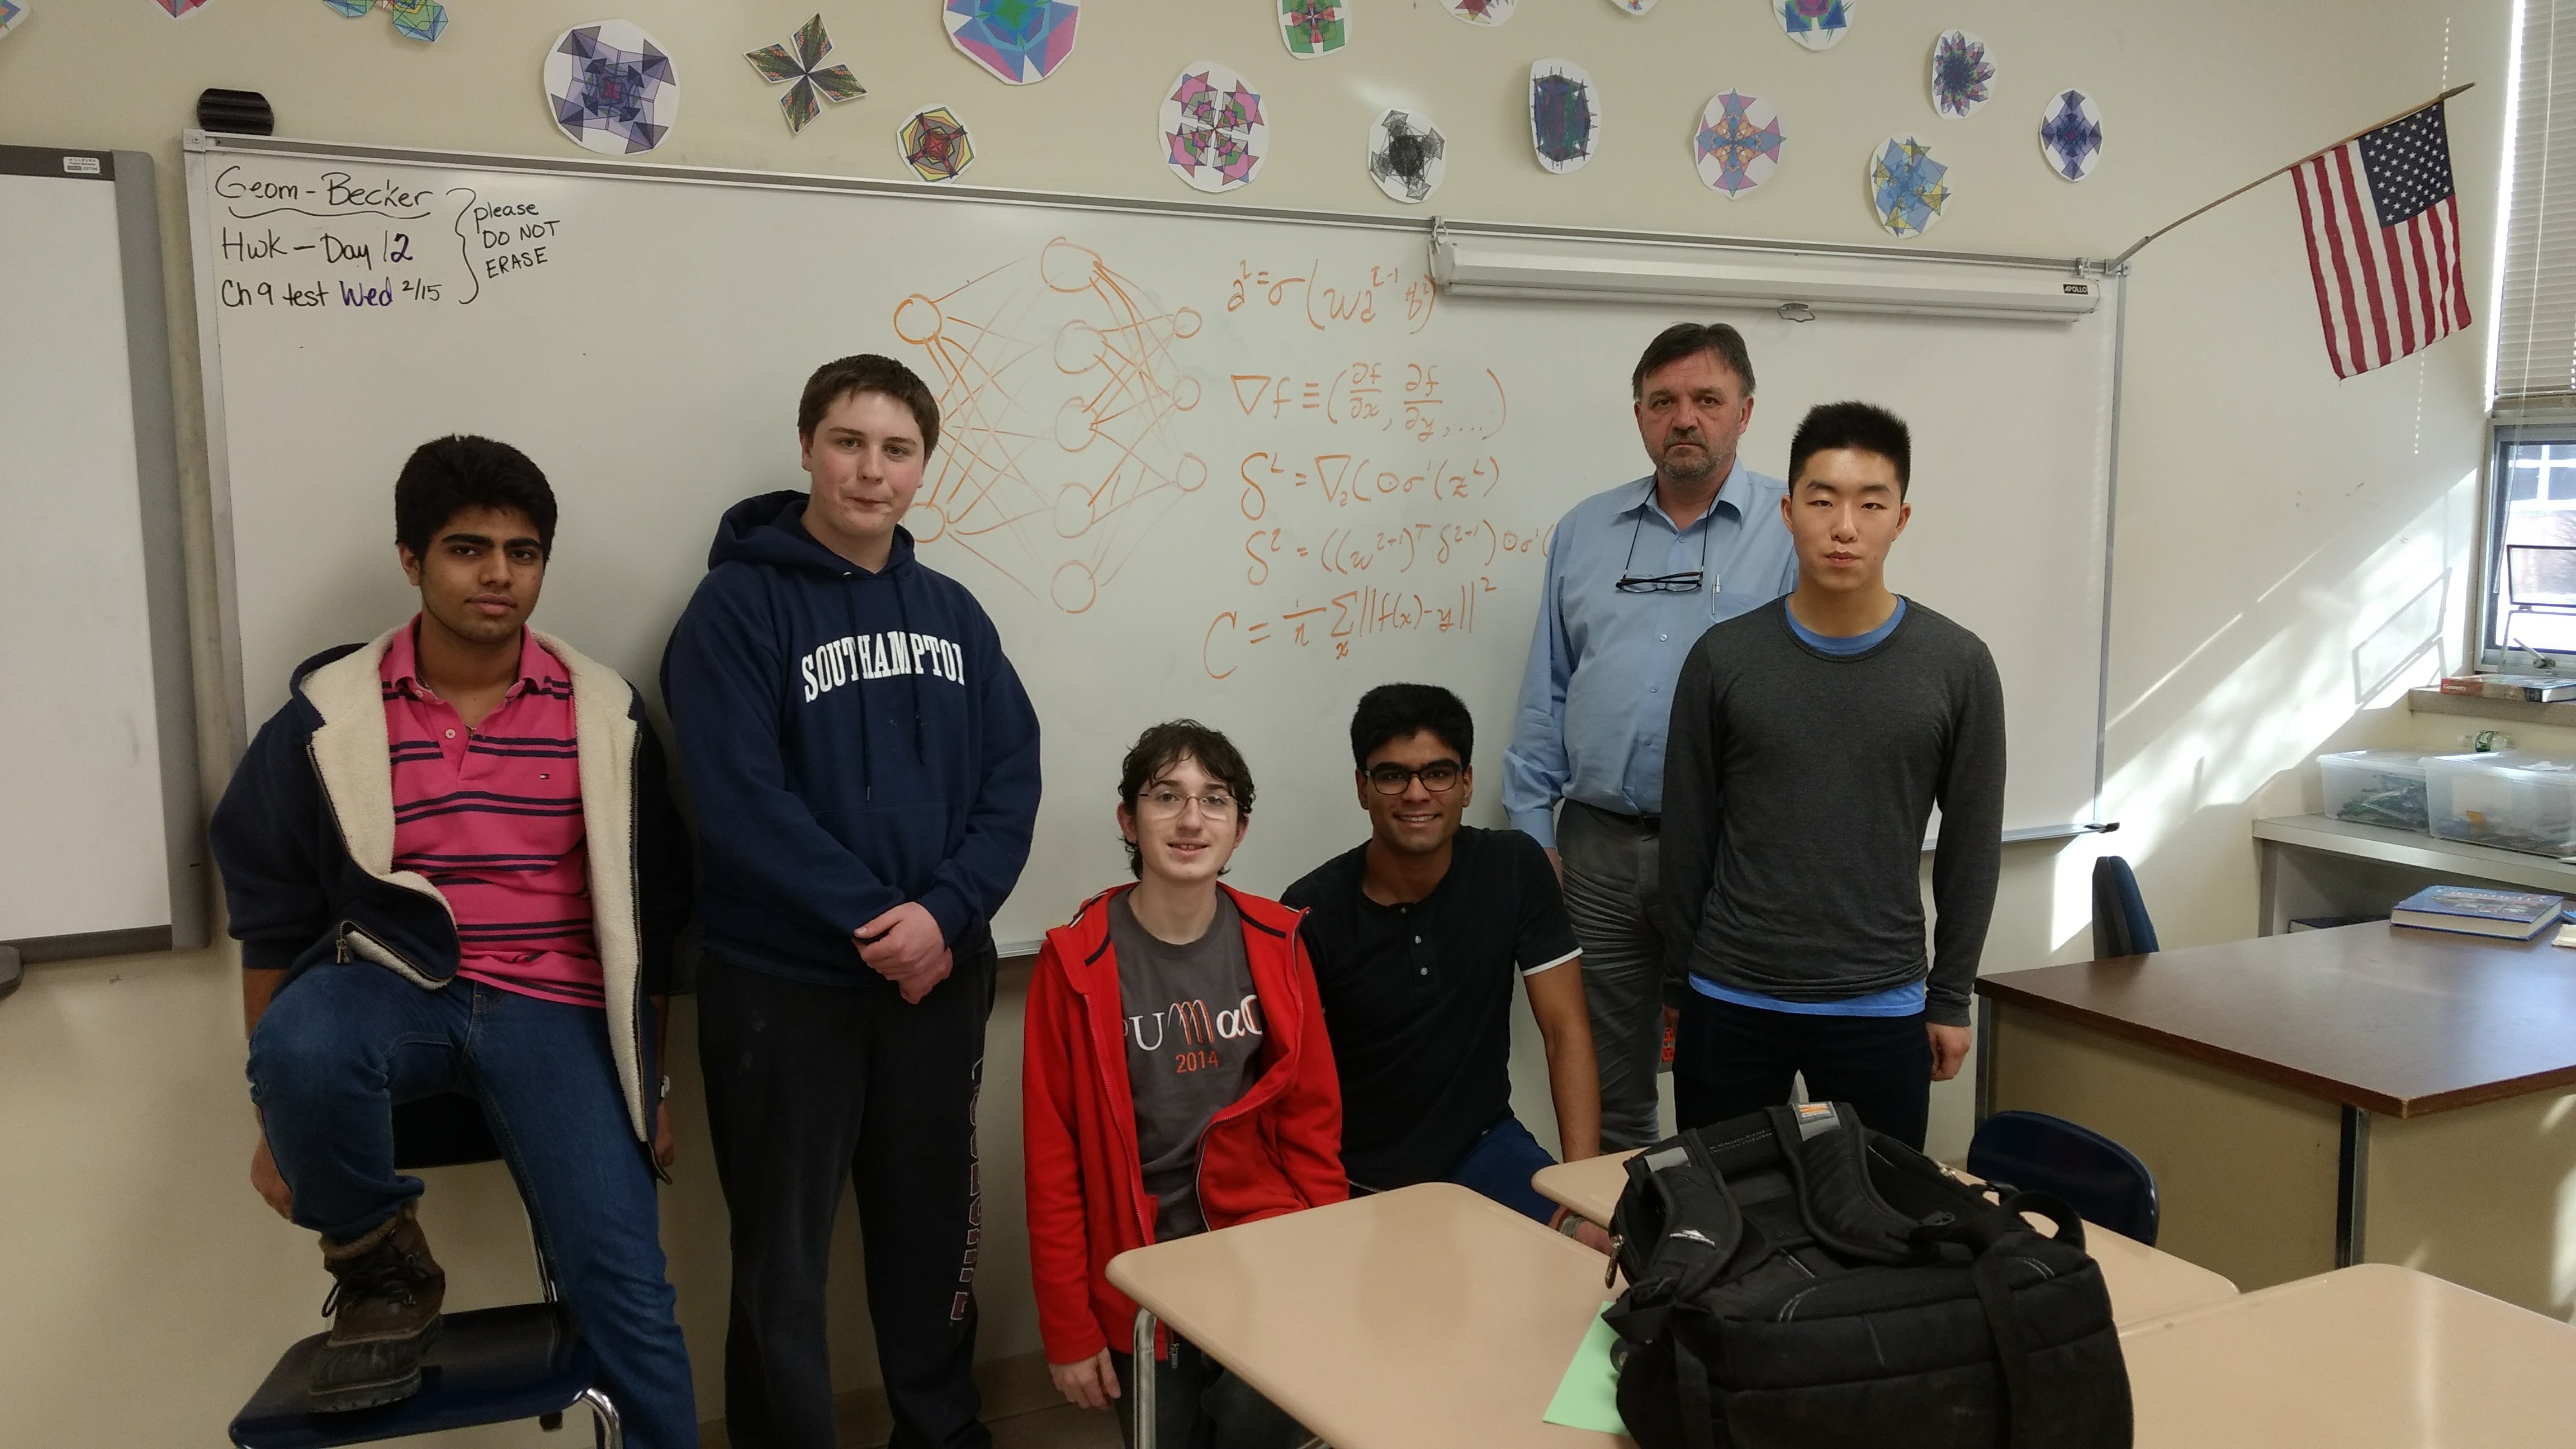 Geom - Becker
Hwk - Day 12
Ch 9 test Wed 2/15
please
DO NOT
ERASE
APOLLO
a^l = σ(wa^{l-1} + b^l)
∇f ≡ (∂f/∂x, ∂f/∂y, ...)
δ^L = ∇_a C ⊙ σ'(z^L)
δ^l = ((w^{l+1})^T δ^{l+1}) ⊙ σ'(
C = 1/n Σ_x ||f(x) - y||^2
SOUTHAMPTON
PUMαC
2014